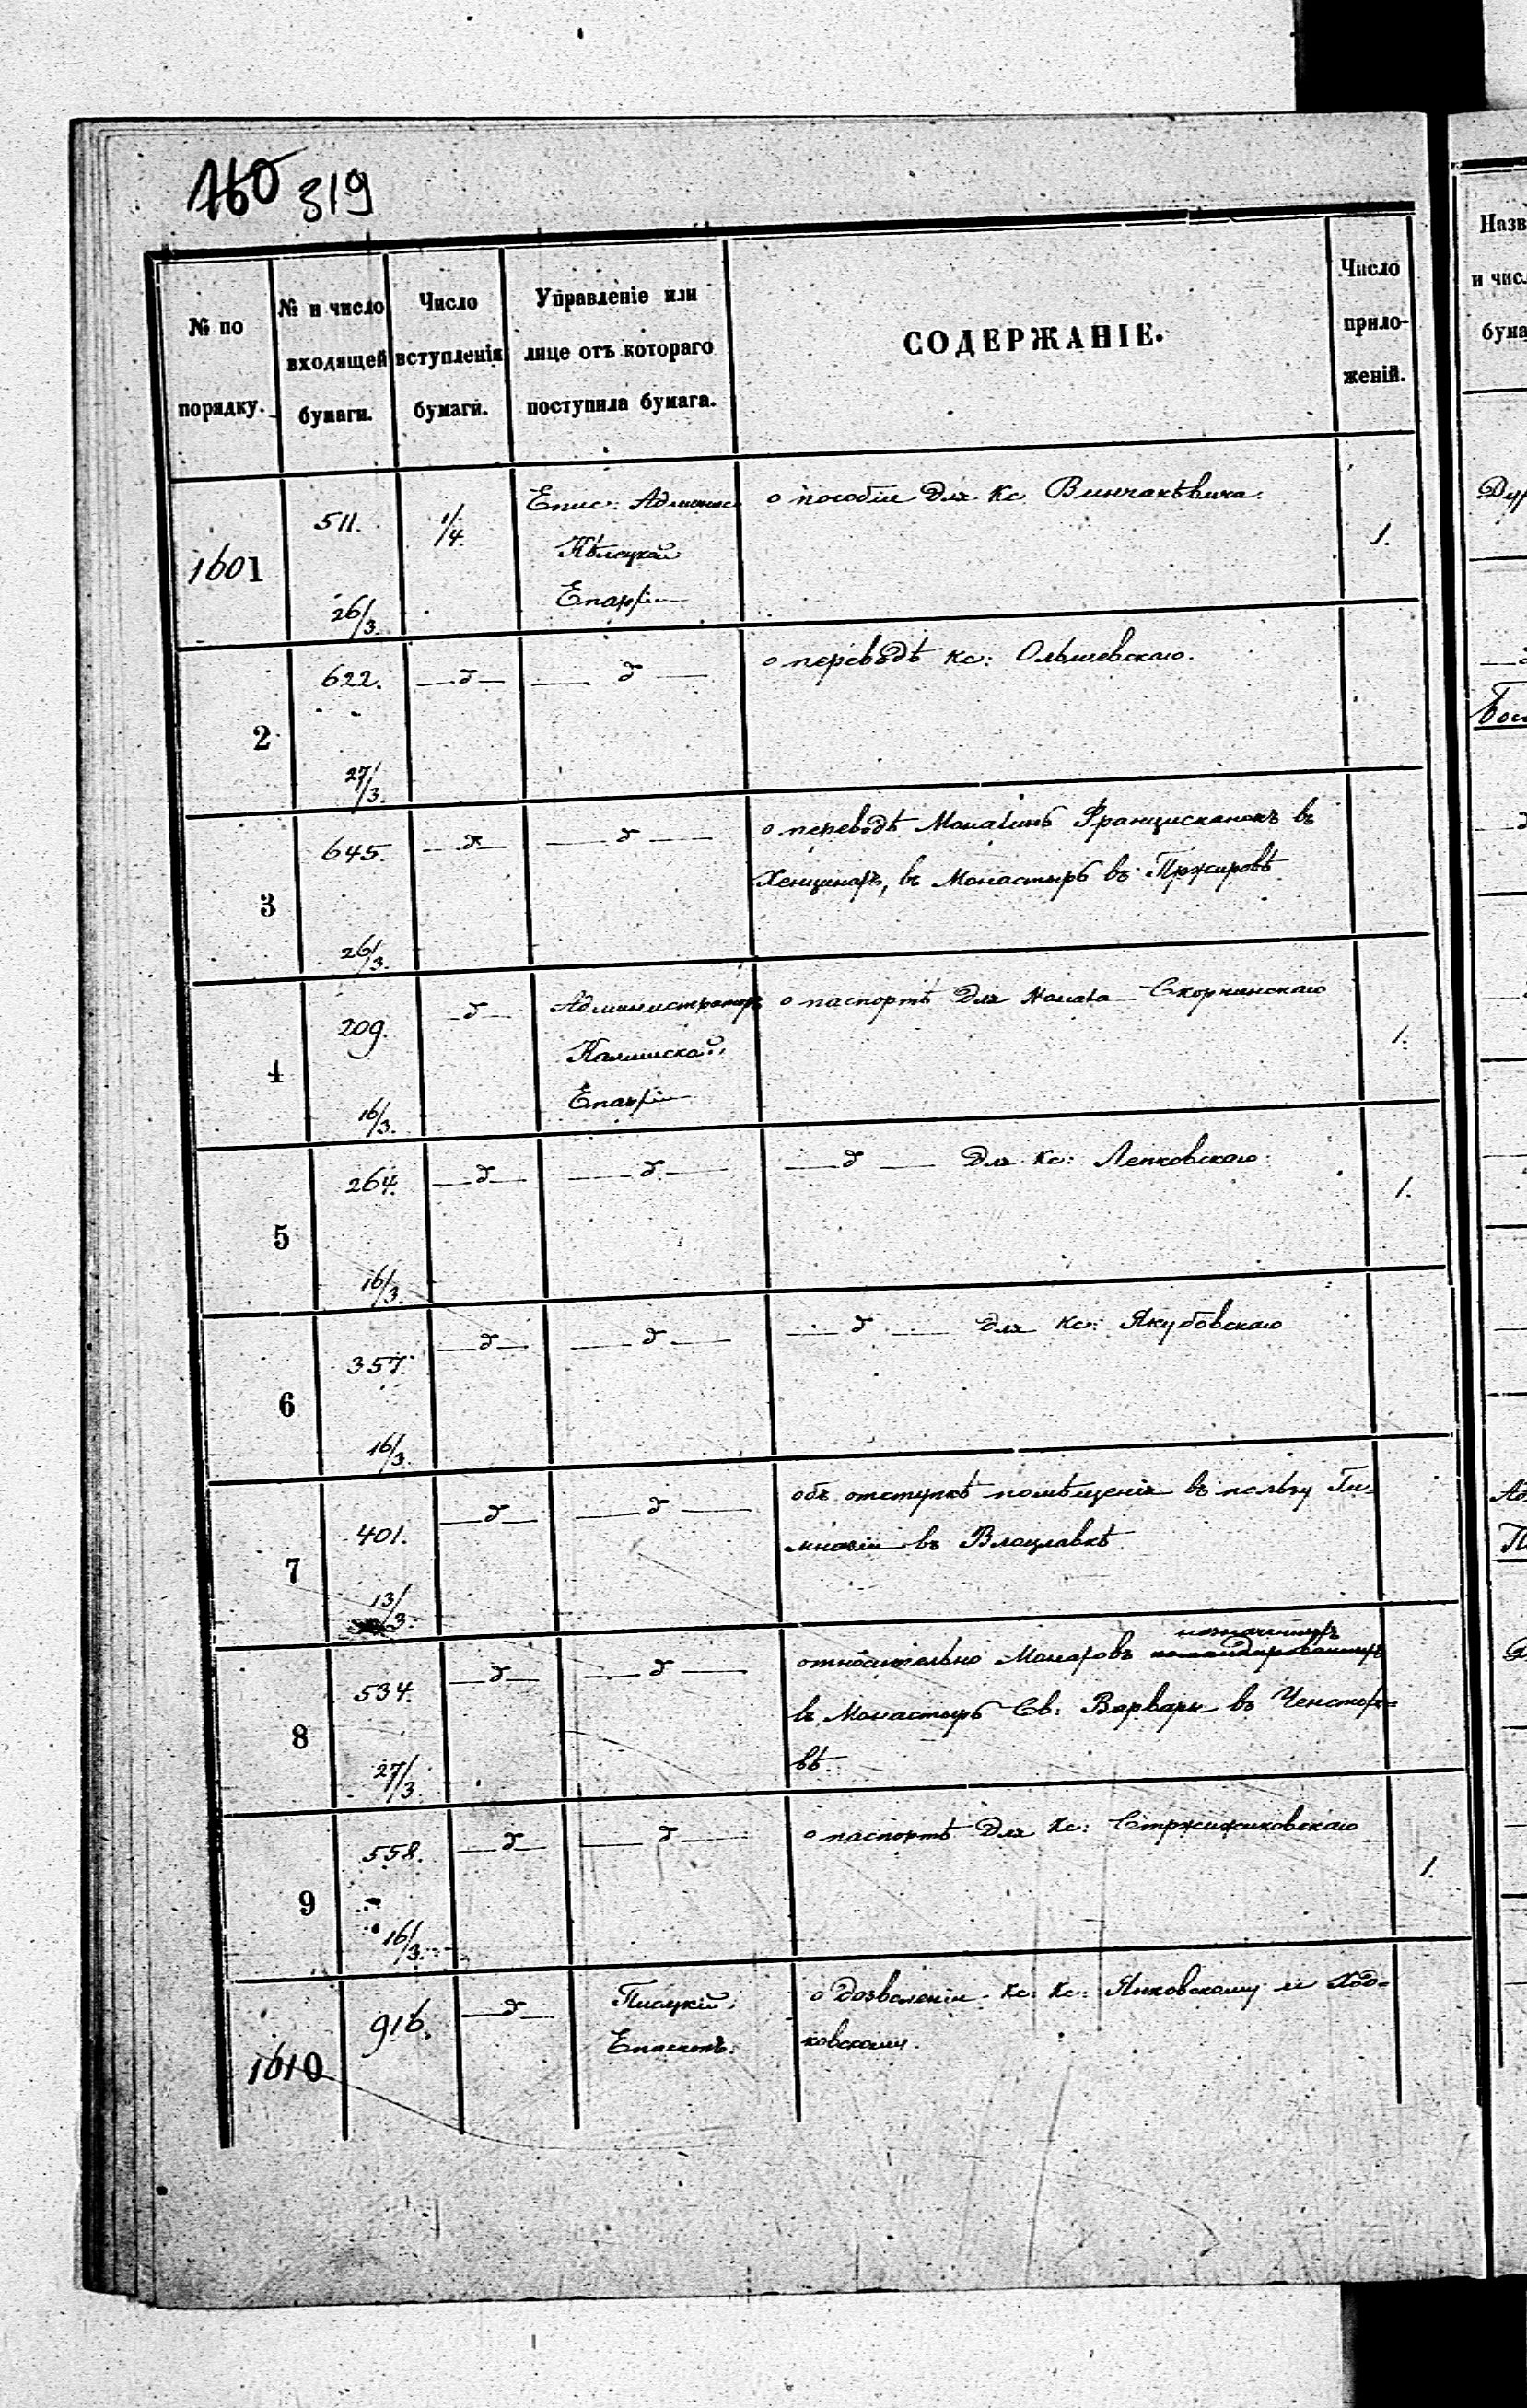 160 319
№ по порядку.
№ и число входящей бумаги.
Число вступленія бумаги.
Управленіе или лице отъ котораго поступила бумага.
СОДЕРЖАНІЕ.
Число приложеній.
1601
511.
26/3.
1/4.
Епис: Админис
Кѣлецкой
Епархіи
о пособіи для Кс Винчакѣвича.
1.
2
622.
27/3.
—д—
—д—
о перевѣдѣ Кс: Ольшевскаго.
3
645.
26/3.
—д—
—д—
о переводѣ Монахинь Францисканокъ въ
Хенцинахъ, въ Монастырь въ Пржировѣ
4
209.
16/3.
—д—
Администраторъ
Калишской
Епархіи
о паспортѣ для Монаха Скорчинскаго
1.
5
264.
16/3.
—д—
—д—
—д— для Кс: Лепковскаго.
1.
6
357.
16/3.
—д—
—д—
—д— для Кс: Якубовскаго
7
401.
13/3.
—д—
—д—
объ отступкѣ помѣщенія въ пользу Ги-
мназіи въ Влоцлавкѣ
8
534.
27/3.
—д—
—д—
назначенныхъ
относительно Монаховъ командированныхъ
въ Монастырь Св: Варвары въ Ченстохо-
вѣ.
9
558.
16/3.
—д—
—д—
о паспортѣ для Кс: Стржижиковскаго
1.
1610
916.
—д—
Плоцкій
Епископъ.
о дозволеніи Кс: Кс: Янковскому и Ход-
ковскому.
Назв
и чис.
бума